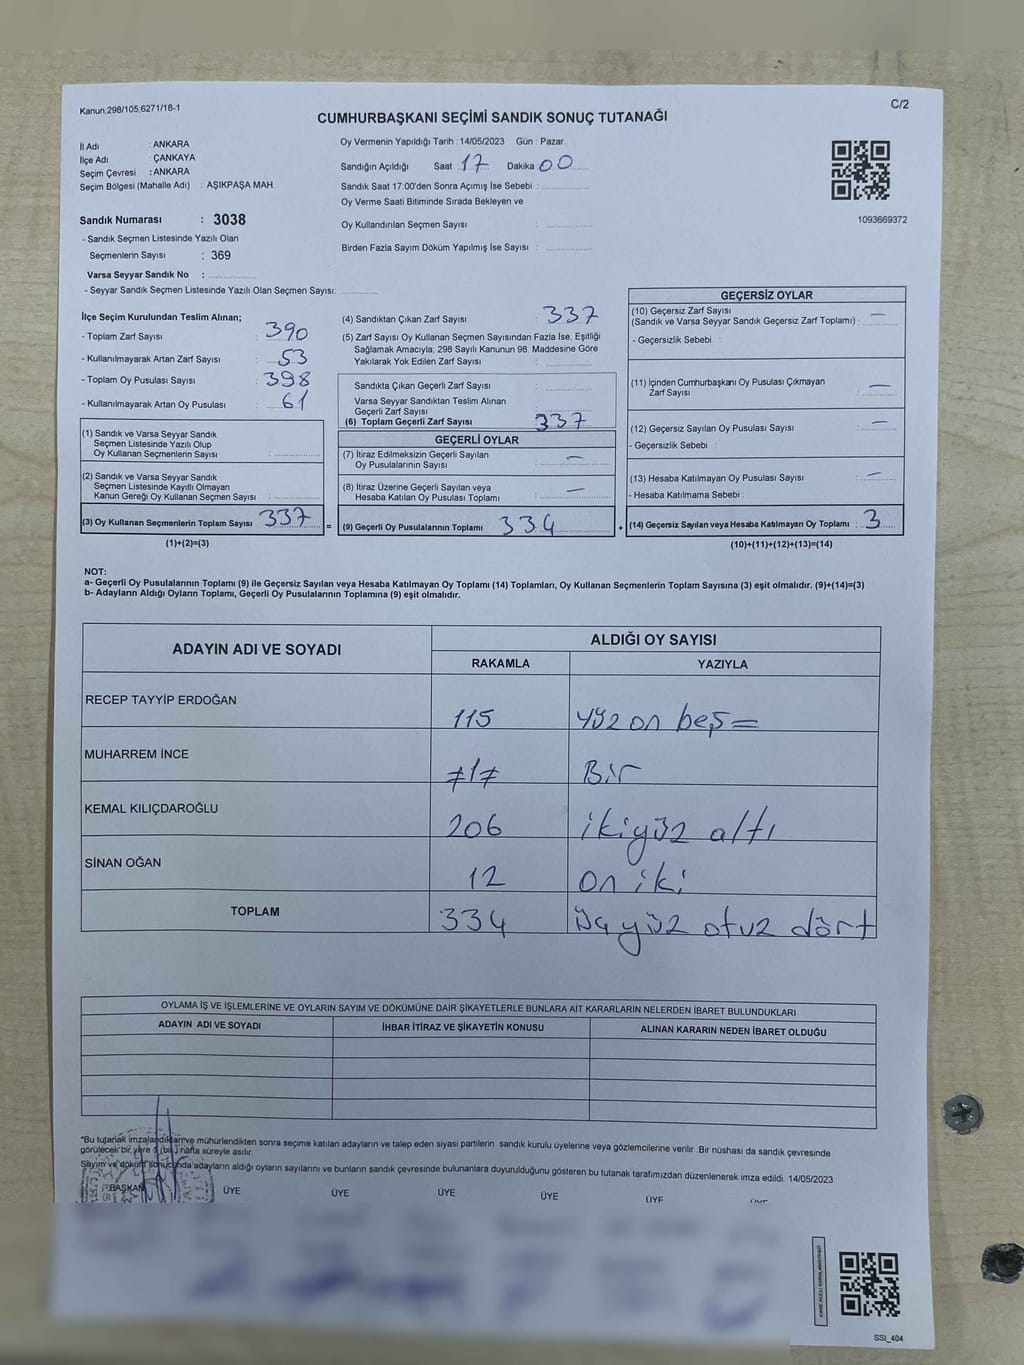 Kanun,298/105,6271/18-1
C/2
CUMHURBAŞKANI SEÇİMİ SANDIK SONUÇ TUTANAĞI
İl Adı : ANKARA
İlçe Adı : ÇANKAYA
Seçim Çevresi : ANKARA
Seçim Bölgesi (Mahalle Adı) : AŞIKPAŞA MAH.
Sandık Numarası : 3038
- Sandık Seçmen Listesinde Yazılı Olan
Seçmenlerin Sayısı : 369
Varsa Seyyar Sandık No :
- Seyyar Sandık Seçmen Listesinde Yazılı Olan Seçmen Sayısı:
Oy Vermenin Yapıldığı Tarih : 14/05/2023 Gün : Pazar
Sandığın Açıldığı Saat : 17 Dakika 00
Sandık Saat 17:00'den Sonra Açımış İse Sebebi :
Oy Verme Saati Bitiminde Sırada Bekleyen ve
Oy Kullandırılan Seçmen Sayısı :
Birden Fazla Sayım Döküm Yapılmış İse Sayısı :
1093669372
İlçe Seçim Kurulundan Teslim Alınan;
- Toplam Zarf Sayısı : 390
- Kullanılmayarak Artan Zarf Sayısı : 53
- Toplam Oy Pusulası Sayısı : 398
- Kullanılmayarak Artan Oy Pusulası : 61
(1) Sandık ve Varsa Seyyar Sandık
Seçmen Listesinde Yazılı Olup
Oy Kullanan Seçmenlerin Sayısı :
(2) Sandık ve Varsa Seyyar Sandık
Seçmen Listesinde Kayıtlı Olmayan
Kanun Gereği Oy Kullanan Seçmen Sayısı :
(3) Oy Kullanan Seçmenlerin Toplam Sayısı : 337 =
(1)+(2)=(3)
(4) Sandıktan Çıkan Zarf Sayısı : 337
(5) Zarf Sayısı Oy Kullanan Seçmen Sayısından Fazla İse, Eşitliği
Sağlamak Amacıyla, 298 Sayılı Kanunun 98. Maddesine Göre
Yakılarak Yok Edilen Zarf Sayısı :
Sandıkta Çıkan Geçerli Zarf Sayısı :
Varsa Seyyar Sandıktan Teslim Alınan
Geçerli Zarf Sayısı :
(6) Toplam Geçerli Zarf Sayısı : 337
GEÇERLİ OYLAR
(7) İtiraz Edilmeksizin Geçerli Sayılan
Oy Pusulalarının Sayısı : —
(8) İtiraz Üzerine Geçerli Sayılan veya
Hesaba Katılan Oy Pusulası Toplamı : —
(9) Geçerli Oy Pusulalarının Toplamı : 334 +
GEÇERSİZ OYLAR
(10) Geçersiz Zarf Sayısı
(Sandık ve Varsa Seyyar Sandık Geçersiz Zarf Toplamı) : —
- Geçersizlik Sebebi :
(11) İçinden Cumhurbaşkanı Oy Pusulası Çıkmayan
Zarf Sayısı : —
(12) Geçersiz Sayılan Oy Pusulası Sayısı : —
- Geçersizlik Sebebi :
(13) Hesaba Katılmayan Oy Pusulası Sayısı : —
- Hesaba Katılmama Sebebi :
(14) Geçersiz Sayılan veya Hesaba Katılmayan Oy Toplamı : 3
(10)+(11)+(12)+(13)=(14)
NOT:
a- Geçerli Oy Pusulalarının Toplamı (9) ile Geçersiz Sayılan veya Hesaba Katılmayan Oy Toplamı (14) Toplamları, Oy Kullanan Seçmenlerin Toplam Sayısına (3) eşit olmalıdır. (9)+(14)=(3)
b- Adayların Aldığı Oyların Toplamı, Geçerli Oy Pusulalarının Toplamına (9) eşit olmalıdır.
ADAYIN ADI VE SOYADI
ALDIĞI OY SAYISI
RAKAMLA YAZIYLA
RECEP TAYYİP ERDOĞAN 115 yüz on beş =
MUHARREM İNCE ≠1≠ Bir
KEMAL KILIÇDAROĞLU 206 ikiyüz altı
SİNAN OĞAN 12 on iki
TOPLAM 334 üçyüz otuz dört
OYLAMA İŞ VE İŞLEMLERİNE VE OYLARIN SAYIM VE DÖKÜMÜNE DAİR ŞİKAYETLERLE BUNLARA AİT KARARLARIN NELERDEN İBARET BULUNDUKLARI
ADAYIN ADI VE SOYADI İHBAR İTİRAZ VE ŞİKAYETİN KONUSU ALINAN KARARIN NEDEN İBARET OLDUĞU
*Bu tutanak imzalandıktan ve mühürlendikten sonra seçime katılan adayların ve talep eden siyasi partilerin sandık kurulu üyelerine veya gözlemcilerine verilir. Bir nüshası da sandık çevresinde
görülecek bir yere 1 (bir) hafta süreyle asılır.
Sayım ve döküm sonucunda adayların aldığı oyların sayılarını ve bunların sandık çevresinde bulunanlara duyurulduğunu gösteren bu tutanak tarafımızdan düzenlenerek imza edildi. 14/05/2023
BAŞKAN ÜYE ÜYE ÜYE ÜYE ÜYE ÜYE
SSİ_404